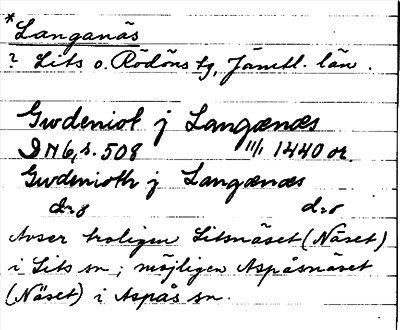 *Langanäs
? Lits o. Rödöns tg, Jämtl. län.
Gwdeniol j Langænæs
DN 6, s. 508 11/1 1440 or.
Gwdenioth j Langænæs
d:o d:o
Avser troligen Litsnäset (Näset)
i Lits sn; möjligen Aspåsnäset
(Näset) i Aspås sn.